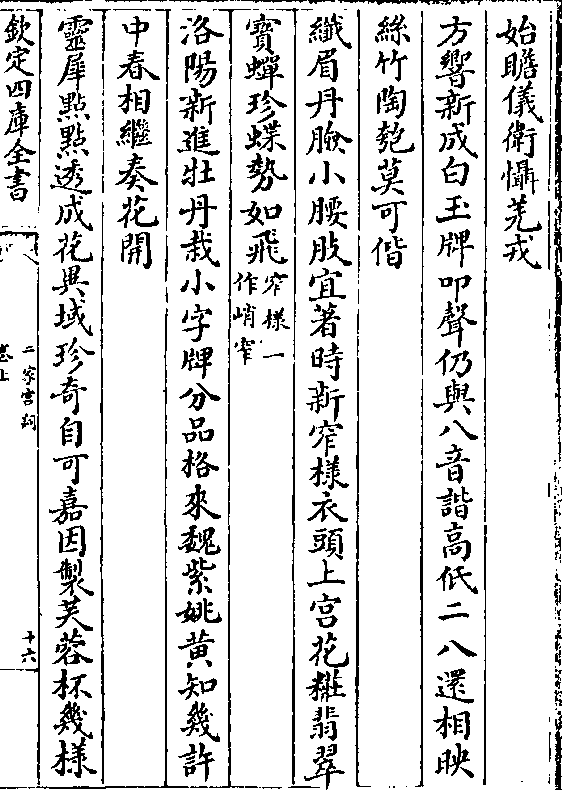 始瞻儀衛懾羌戎
方響新成白玉牌叩聲仍與八音諧高低二八還相映
絲竹陶匏莫可偕
纖眉丹臉小腰肢宜著時新窄様衣頭上宫花糚翡翠
寶蟬珍蝶勢如飛窄様一作峭窄
洛陽新進牡丹栽小字牌分品格來魏紫姚黄知幾許
中春相繼奏花開
靈犀點點透成花異域珍奇自可嘉因製芙蓉杯幾様
欽定四庫全書
二家宫詞
卷上
十六